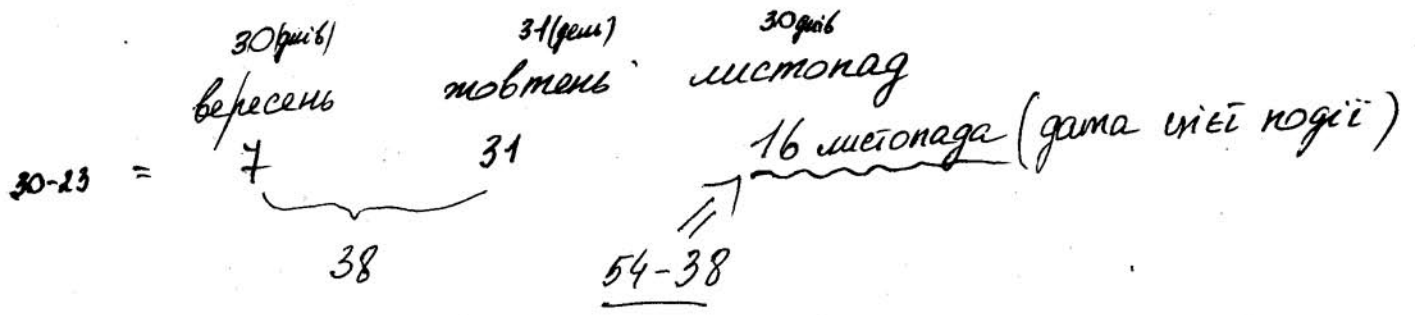 30(днів) 31(день) 30 днів
вересень жовтень листопад
30-23 = 7 31 16 листопада (дата цієї події)
38 54-38